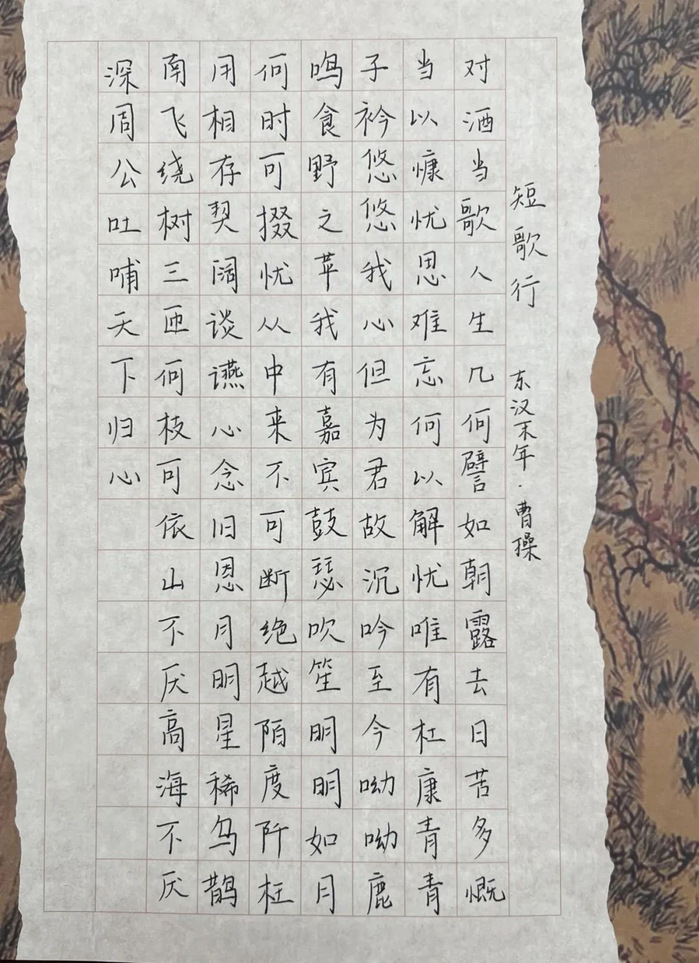 短歌行 东汉末年·曹操
对酒当歌人生几何譬如朝露去日苦多慨
当以慷忧思难忘何以解忧唯有杜康青青
子衿悠悠我心但为君故沉吟至今呦呦鹿
鸣食野之苹我有嘉宾鼓瑟吹笙明明如月
何时可掇忧从中来不可断绝越陌度阡枉
用相存契阔谈讌心念旧恩月明星稀乌鹊
南飞绕树三匝何枝可依山不厌高海不厌
深周公吐哺天下归心